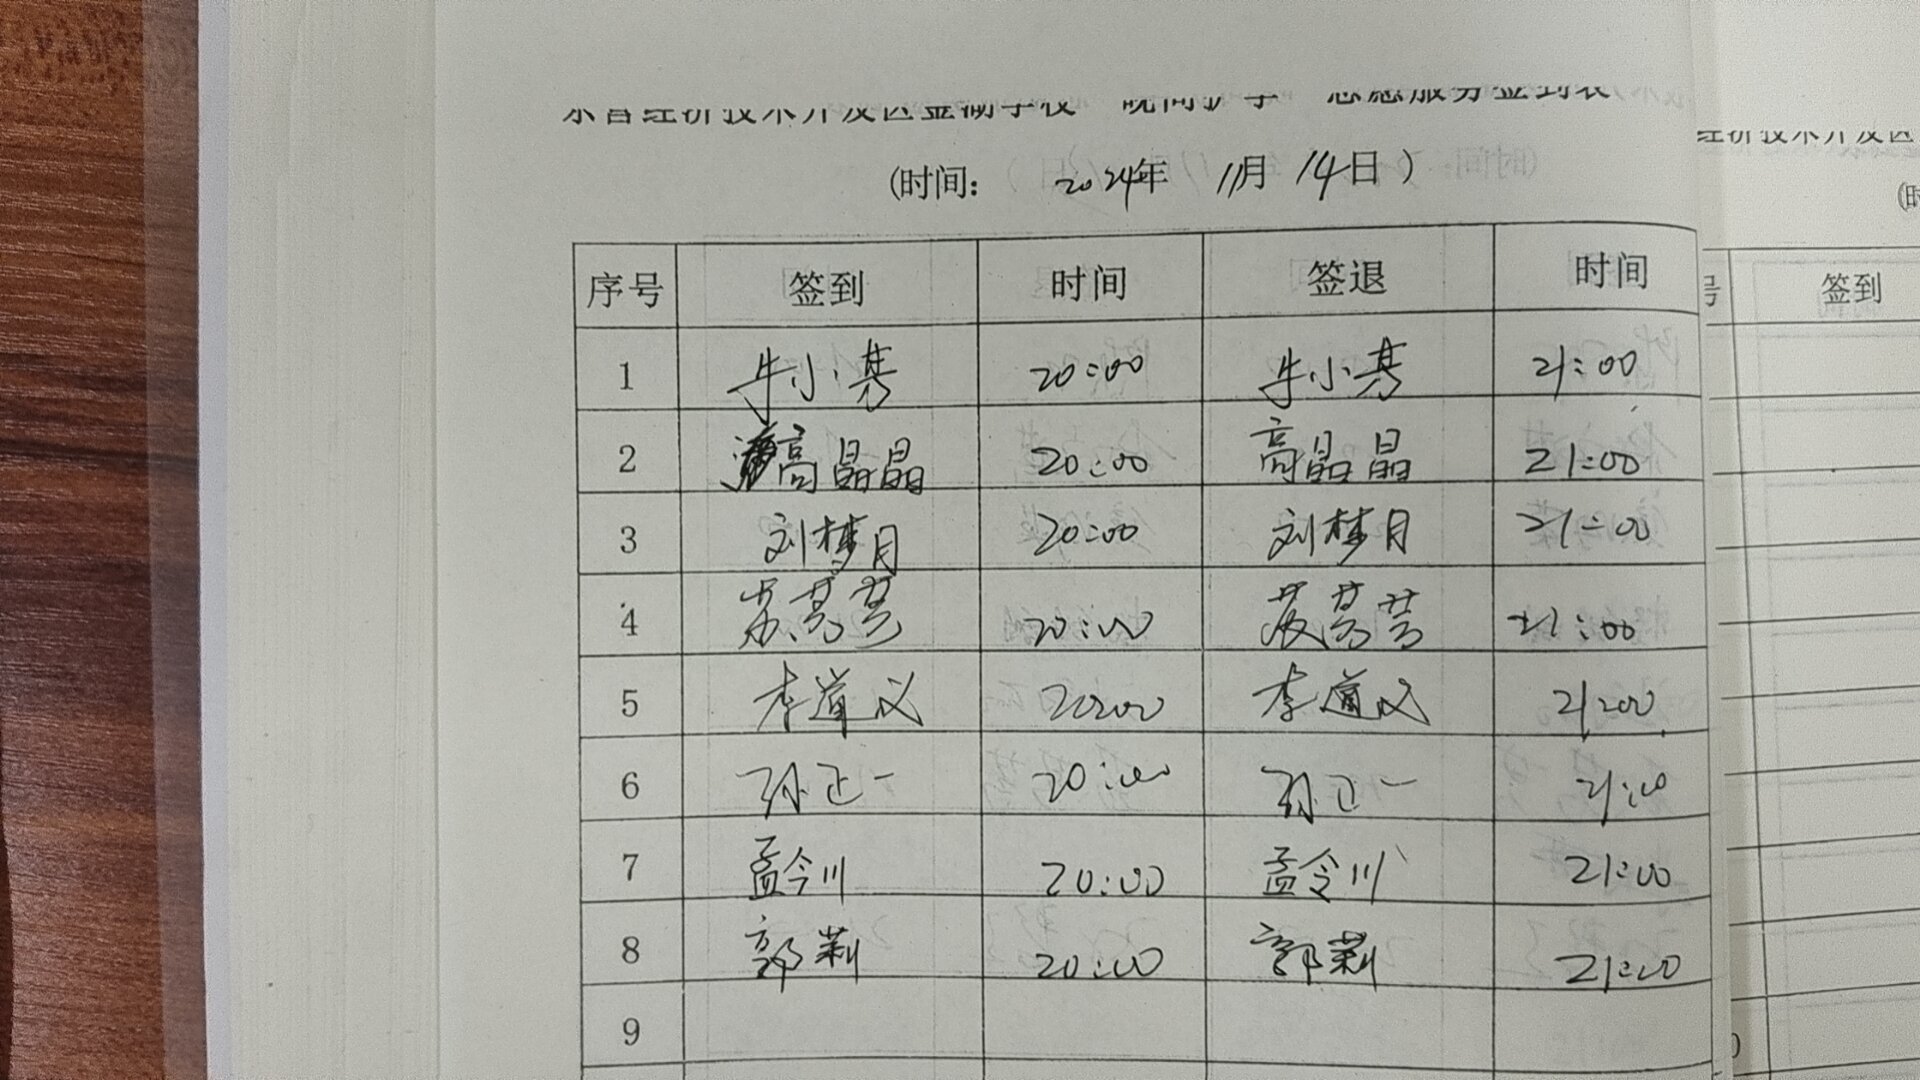 (时间: 2024年 11月 14日)
序号 签到 时间 签退 时间
1 牛小芳 20:00 牛小芳 21:00
2 高晶晶 20:00 高晶晶 21:00
3 刘梦月 20:00 刘梦月 21:00
4 20:00 21:00
5 李道义 20:00 李道义 21:00
6 孙正一 20:00 孙正一 21:00
7 孟令川 20:00 孟令川 21:00
8 郭莉 20:00 郭莉 21:00
9
经济技术开发区
号 签到